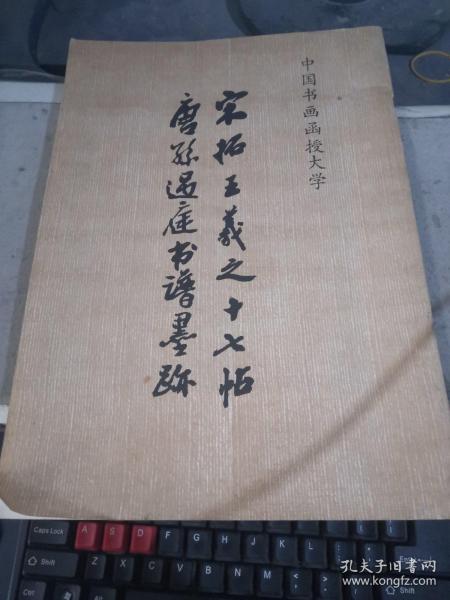 中国书画函授大学
宋拓王羲之十七帖
唐孙过庭书谱墨跡
Caps Lock
A
S
D
Shift
Z
X
C
V
B
N
M
Ctrl
Alt
Shift
孔夫子旧书网
www.kongfz.com